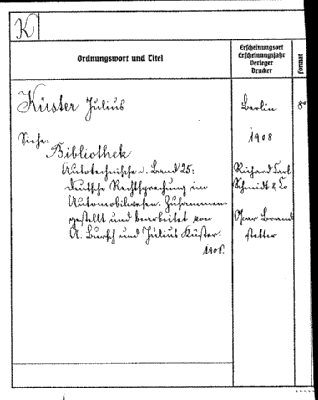 K
Ordnungswort und Titel
Erscheinungsort
Erscheinungsjahr
Verleger
Drucker
Format
Küster Julius
Berlin
8°
Siehe:
1908
Bibliothek
Autotechnische. Band 25:
Richard Carl
Deutsche Rechtsprechung im
Schmidt & Co
Automobilwesen. Zusammen-
gestellt und bearbeitet von
Oscar Brand-
A. Bursch und Julius Küster
stetter
1908.